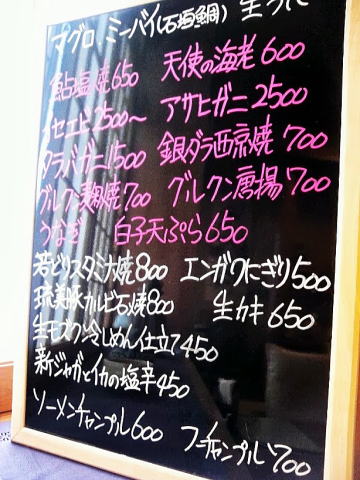 マグロ ミーバイ(石垣鯛) 生うに
鮎塩焼650 天使の海老600
イセエビ2500〜 アサヒガニ2500
タラバガニ1500 銀ダラ西京焼700
グルクン麹焼700 グルクン唐揚700
うなぎ 白子天ぷら650
若どりスタミナ焼800 エンガワにぎり500
琉美豚カルビ石焼800 生カキ650
生モズク冷しめん仕立450
新ジャガとイカの塩辛450
ソーメンチャンプル600 フーチャンプル700